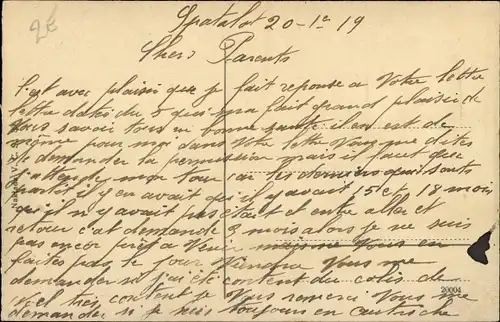 2E
Spatalot 20-1er 19
Chers Parents
C'est avec plaisir que je fait reponse a Votre lettre
lettre datés du 5 qui ma fait grand plaisir de
Vous savoir tous en bonne santé il en est de
même pour moi dans Votre lettre Vous me dites
de demander la permission mais il faut que
j'attende mon tour car les derniers qui sont
partis il y en avait qui il y avait 15 et 18 mois
qu'il n'y avait pas était et entre aller et
retour c'at demande 3 mois alors je ne suis
pas encor prêt a Venir mais ne Vous en
faites pas le jour Viendra Vous me
demander si j'ai été content du colis de
très content je Vous remerci Vous me
demander si je suis toujours en Autriche
20004